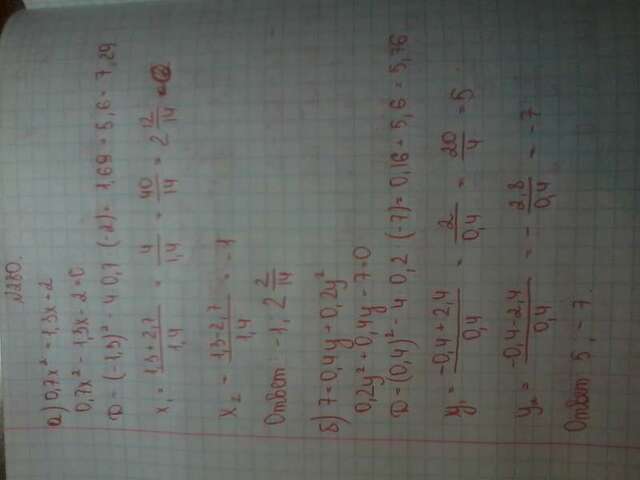 №280.
а) 0,7x² = 1,3x + 2
0,7x² - 1,3x - 2 = 0
D = (-1,3)² - 4 0,7 (-2) = 1,69 + 5,6 = 7,29
x₁ = 1,3+2,7/1,4 = 4/1,4 = 40/14 = 2 12/14
x₂ = 1,3-2,7/1,4 = -1
Ответ: -1, 2 2/14
б) 7 = 0,4y + 0,2y²
0,2y² + 0,4y - 7 = 0
D = (0,4)² - 4 0,2 (-7) = 0,16 + 5,6 = 5,76
y₁ = -0,4+2,4/0,4 = 2/0,4 = 20/4 = 5
y₂ = -0,4-2,4/0,4 = - 2,8/0,4 = -7
Ответ 5, -7.